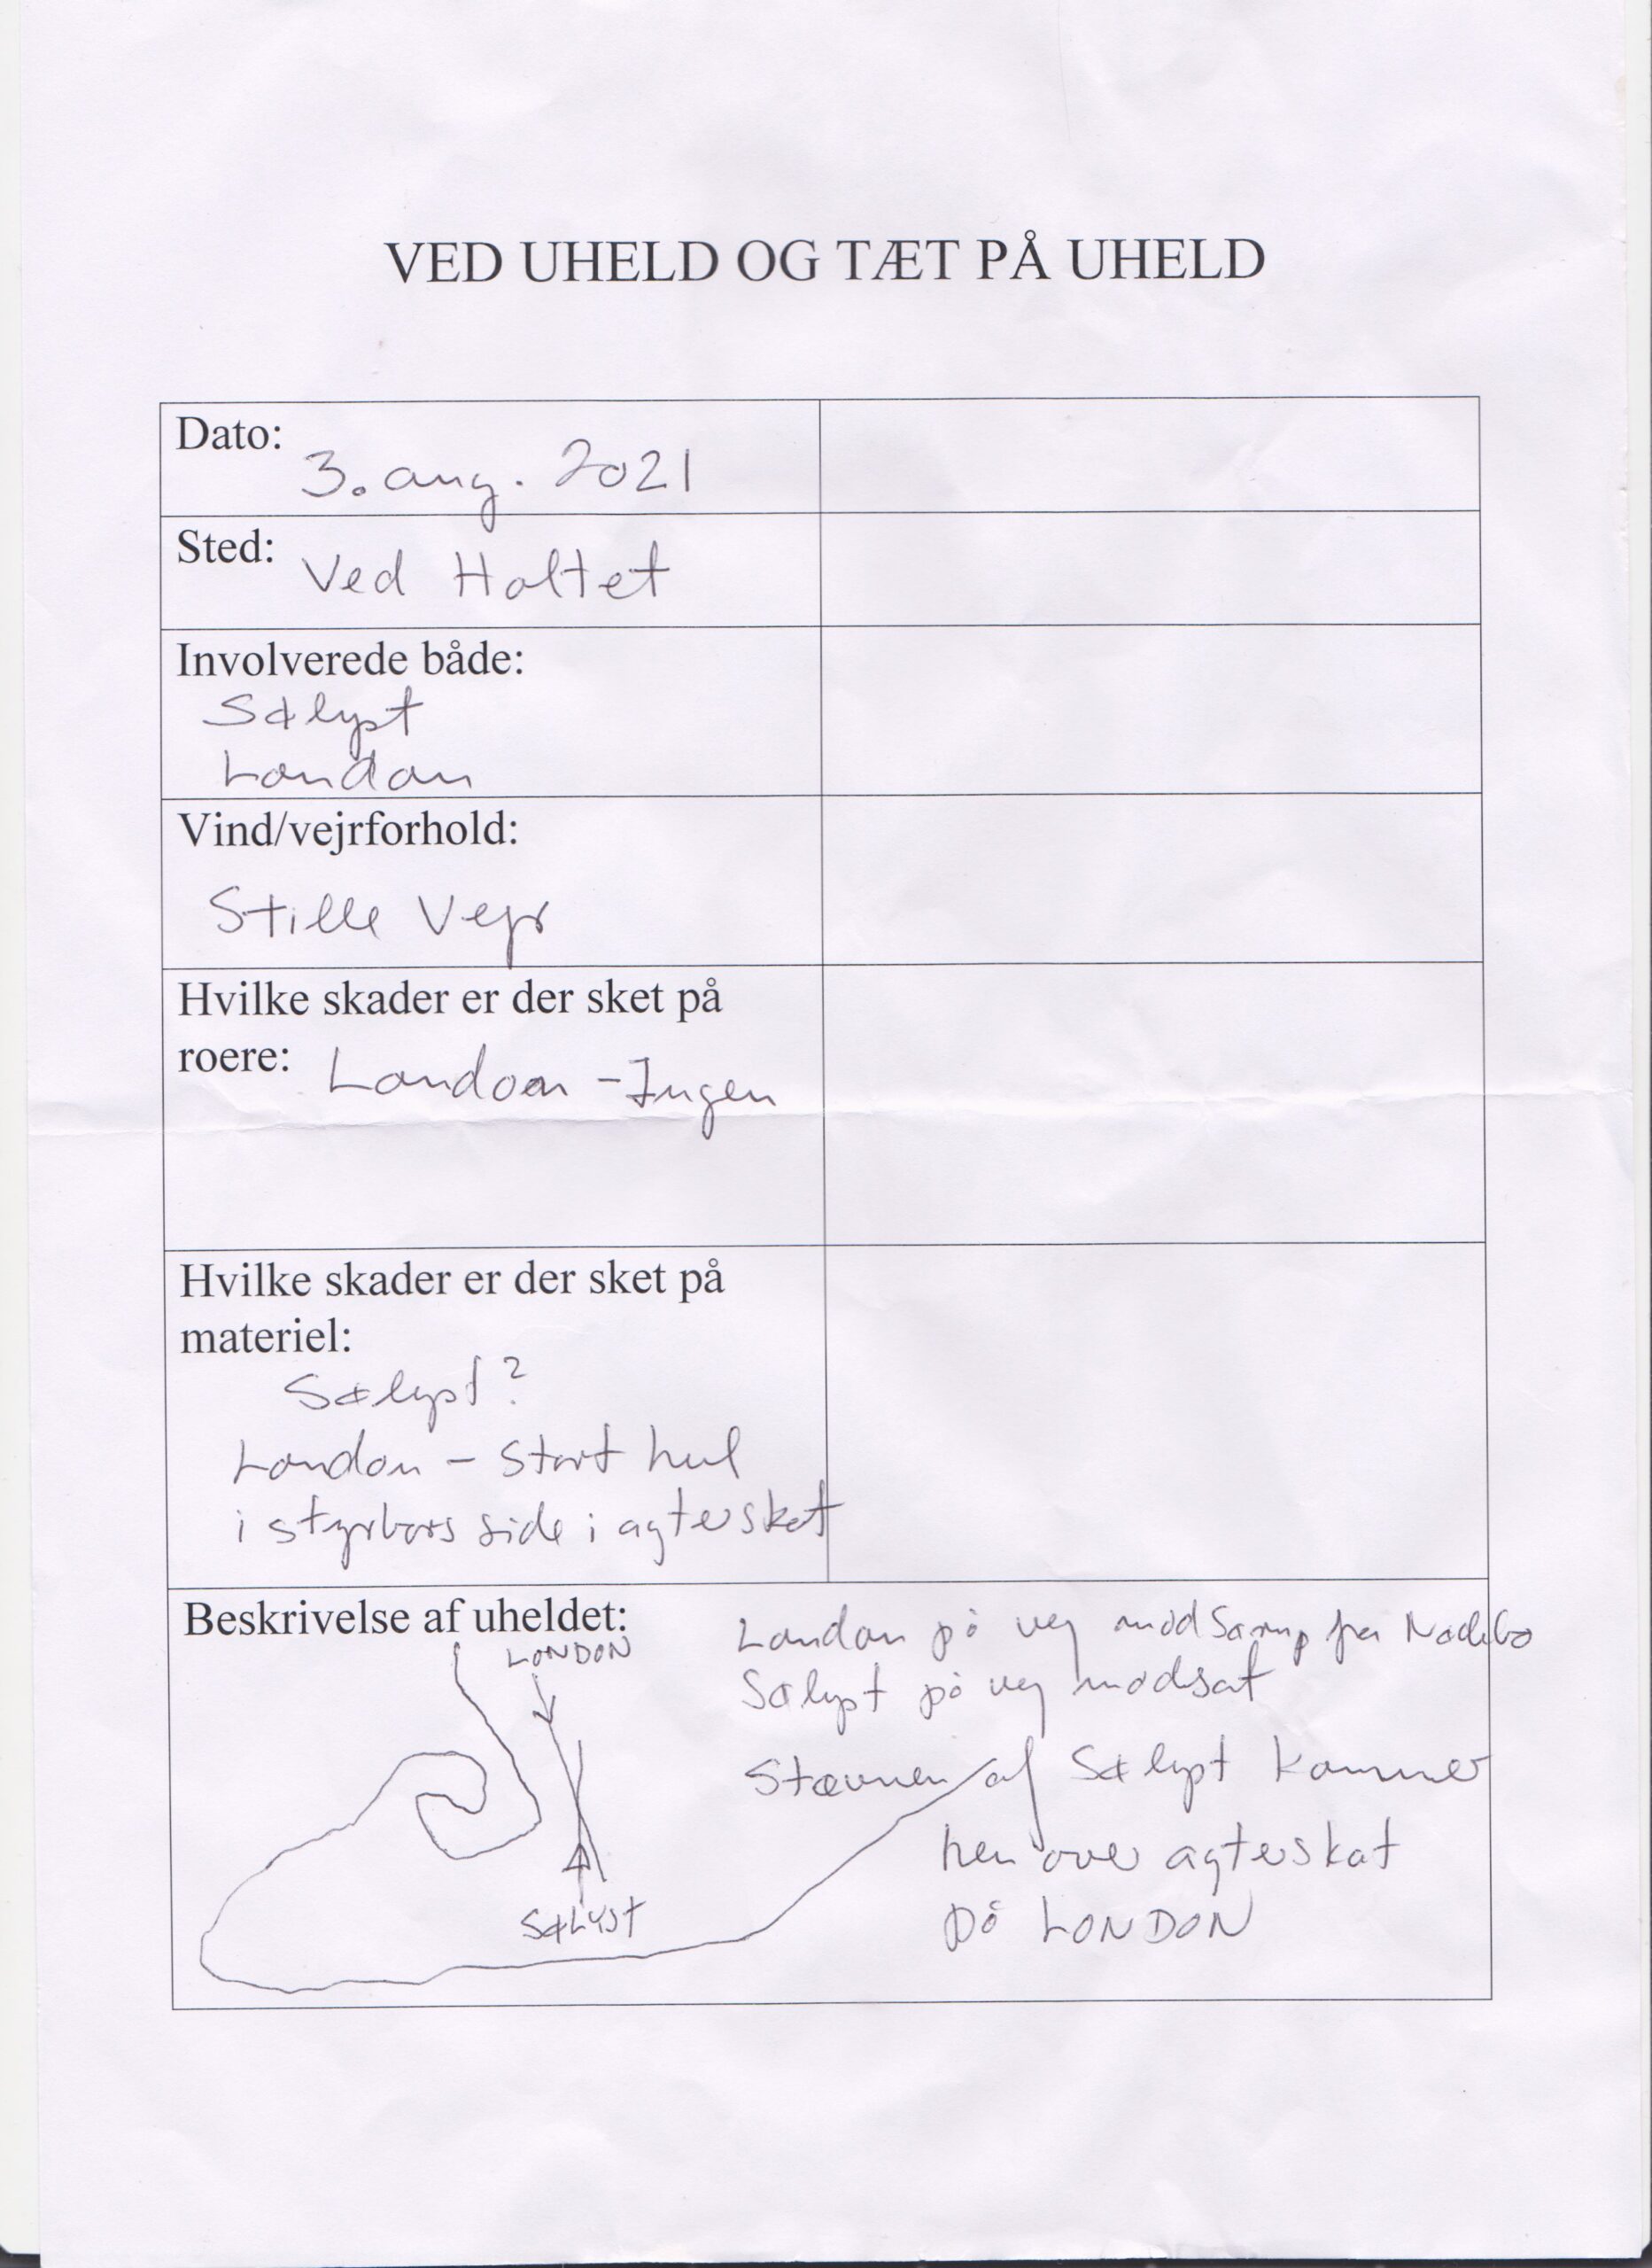 VED UHELD OG TÆT PÅ UHELD
Dato:
3. aug. 2021
Sted:
Ved Holtet
Involverede både:
Sælyst
London
Vind/vejrforhold:
Stille Vejr
Hvilke skader er der sket på
roere: London - Ingen
Hvilke skader er der sket på
materiel:
Sælyst?
London - Stort hul
i styrbors side i agterskot
Beskrivelse af uheldet:
LONDON
SÆLYST
London på vej mod Sørup fra Nødebo
Sælyst på vej modsat
Stævnen af Sælyst kommer
hen over agterskot
på LONDON